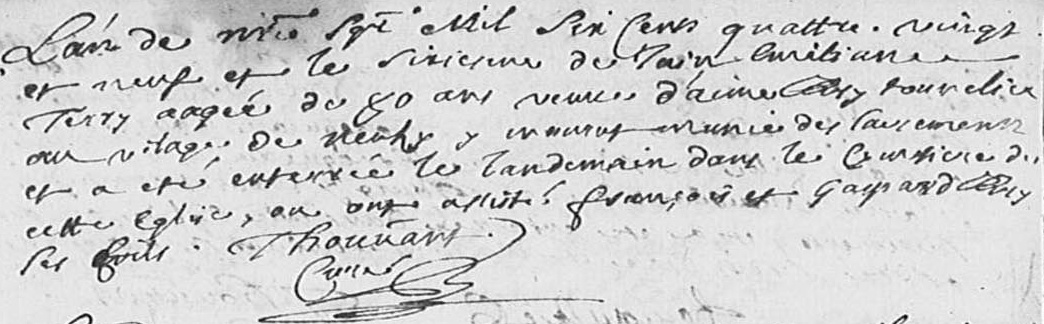 L'an de nre Sgr Mil Six Cens quattre. vingt
et neuf et le sixiesme de Juin Emiliane
Terry aagée de 80 ans veuve d'aimé tournelier
au vilage de y mourut munie des sacremens
et a eté enterrée le landemain dans le Cimitiere de
cette Eglise, ou ont assisté françois et Gaspard
ses fils. Thouuant
Curé